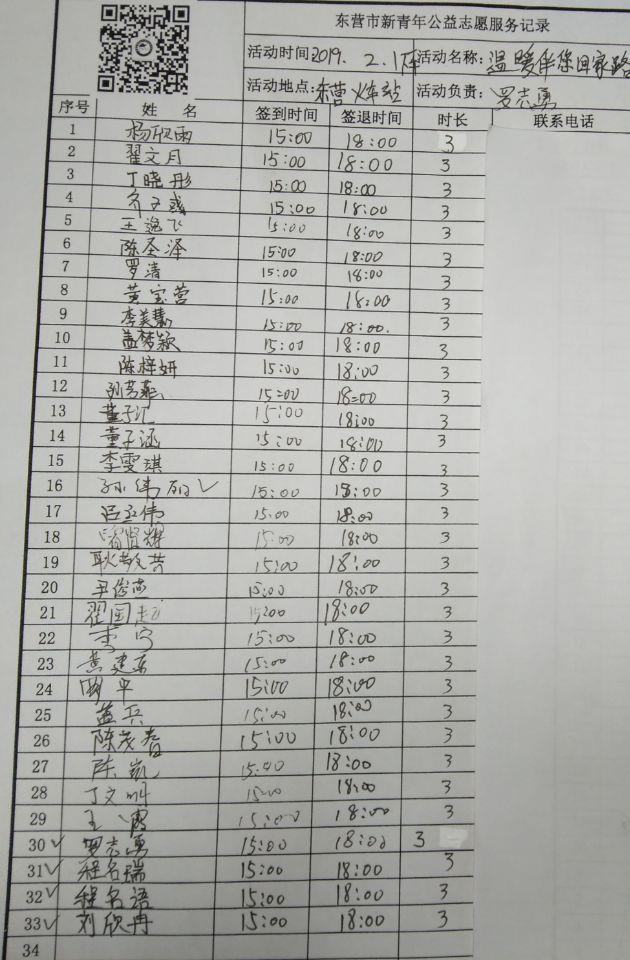 东营市新青年公益志愿服务记录
活动时间 2019. 2. 1下 活动名称: 温暖伴你回家路
活动地点: 东营火车站 活动负责: 罗志勇
序号 姓 名 签到时间 签退时间 时长 联系电话
1 杨欣雨 15:00 18:00 3
2 翟文月 15:00 18:00 3
3 丁晓彤 15:00 18:00 3
4 15:00 18:00 3
5 王逸飞 15:00 18:00 3
6 陈圣泽 15:00 18:00 3
7 罗清 15:00 18:00 3
8 黄宝营 15:00 18:00 3
9 李美慧 15:00 18:00. 3
10 孟梦颖 15:00 18:00 3
11 陈梓妍 15:00 18:00 3
12 15:00 18:00 3
13 董子汇 15:00 18:00 3
14 董子涵 15:00 18:00 3
15 李雯琪 15:00 18:00 3
16 ✓ 15:00 18:00 3
17 15:00 18:00 3
18 15:00 18:00 3
19 15:00 18:00 3
20 尹俊燕 15:00 18:00 3
21 翟国 15:00 18:00 3
22 李宁 15:00 18:00 3
23 黄建东 15:00 18:00 3
24 周平 15:00 18:00 3
25 孟兵 15:00 18:00 3
26 陈茂春 15:00 18:00 3
27 陈凯 15:00 18:00 3
28 丁文 15:00 18:00 3
29 王 15:00 18:00 3
30✓ 罗志勇 15:00 18:00 3
31✓ 程名瑞 15:00 18:00 3
32✓ 程名语 15:00 18:00 3
33✓ 刘欣冉 15:00 18:00 3
34